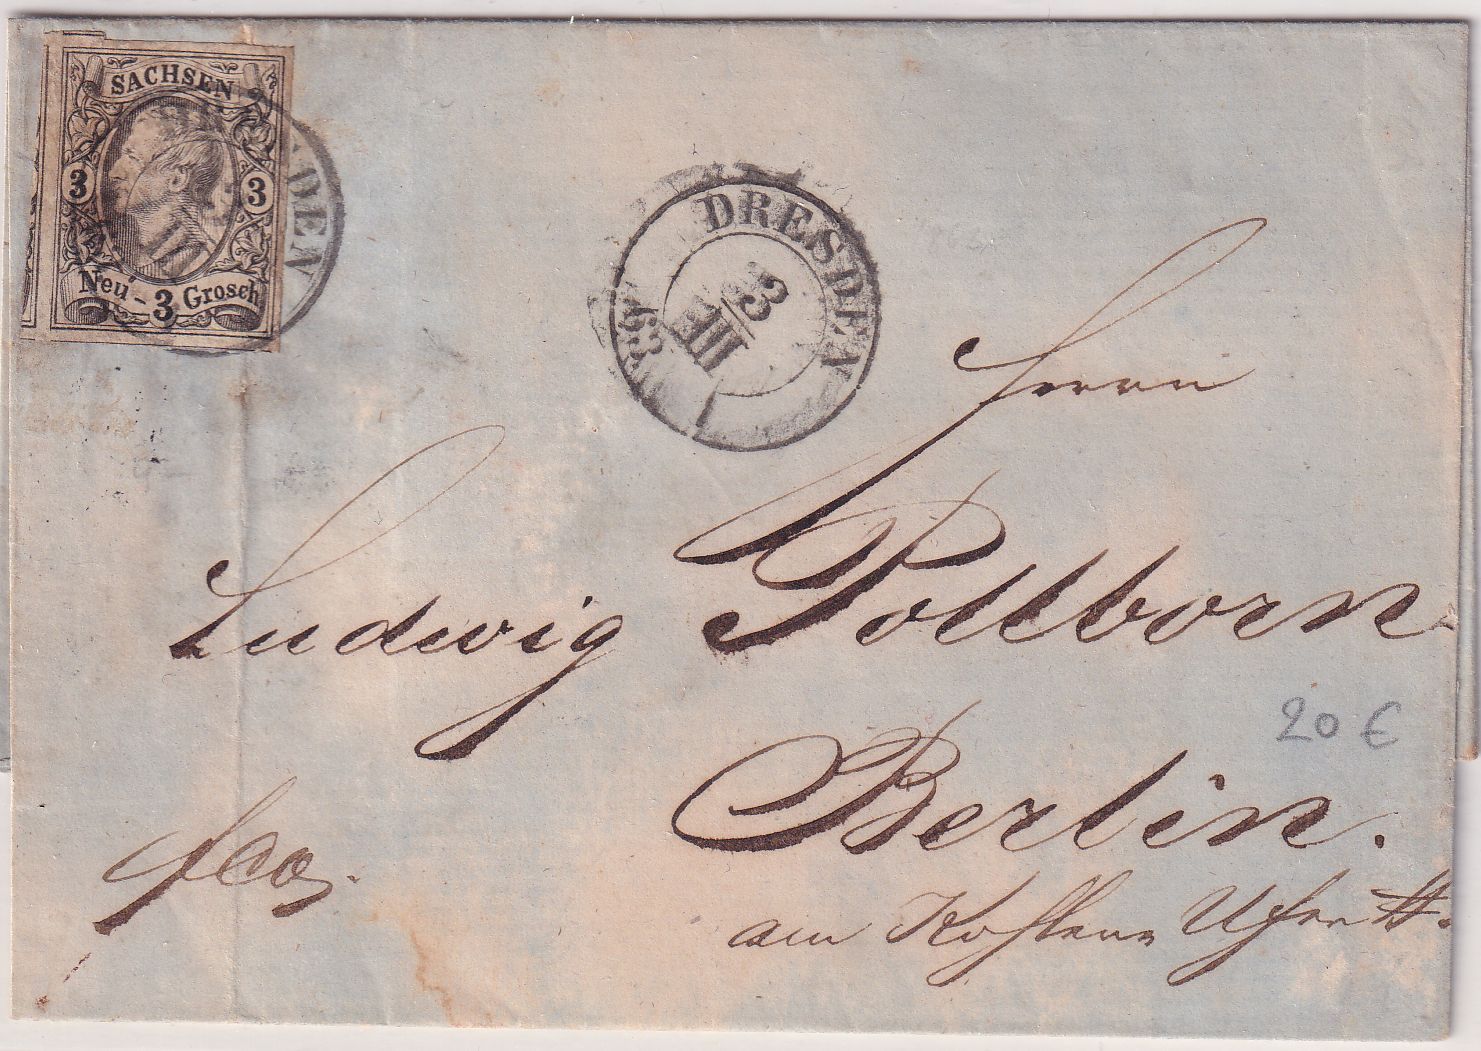 SACHSEN
3 3
Neu - 3 Grosch
DEN
DRESDEN
3
III
63
Herrn
Ludwig Pollborn
Berlin.
am Kohlen Ufer
fco.
20 €